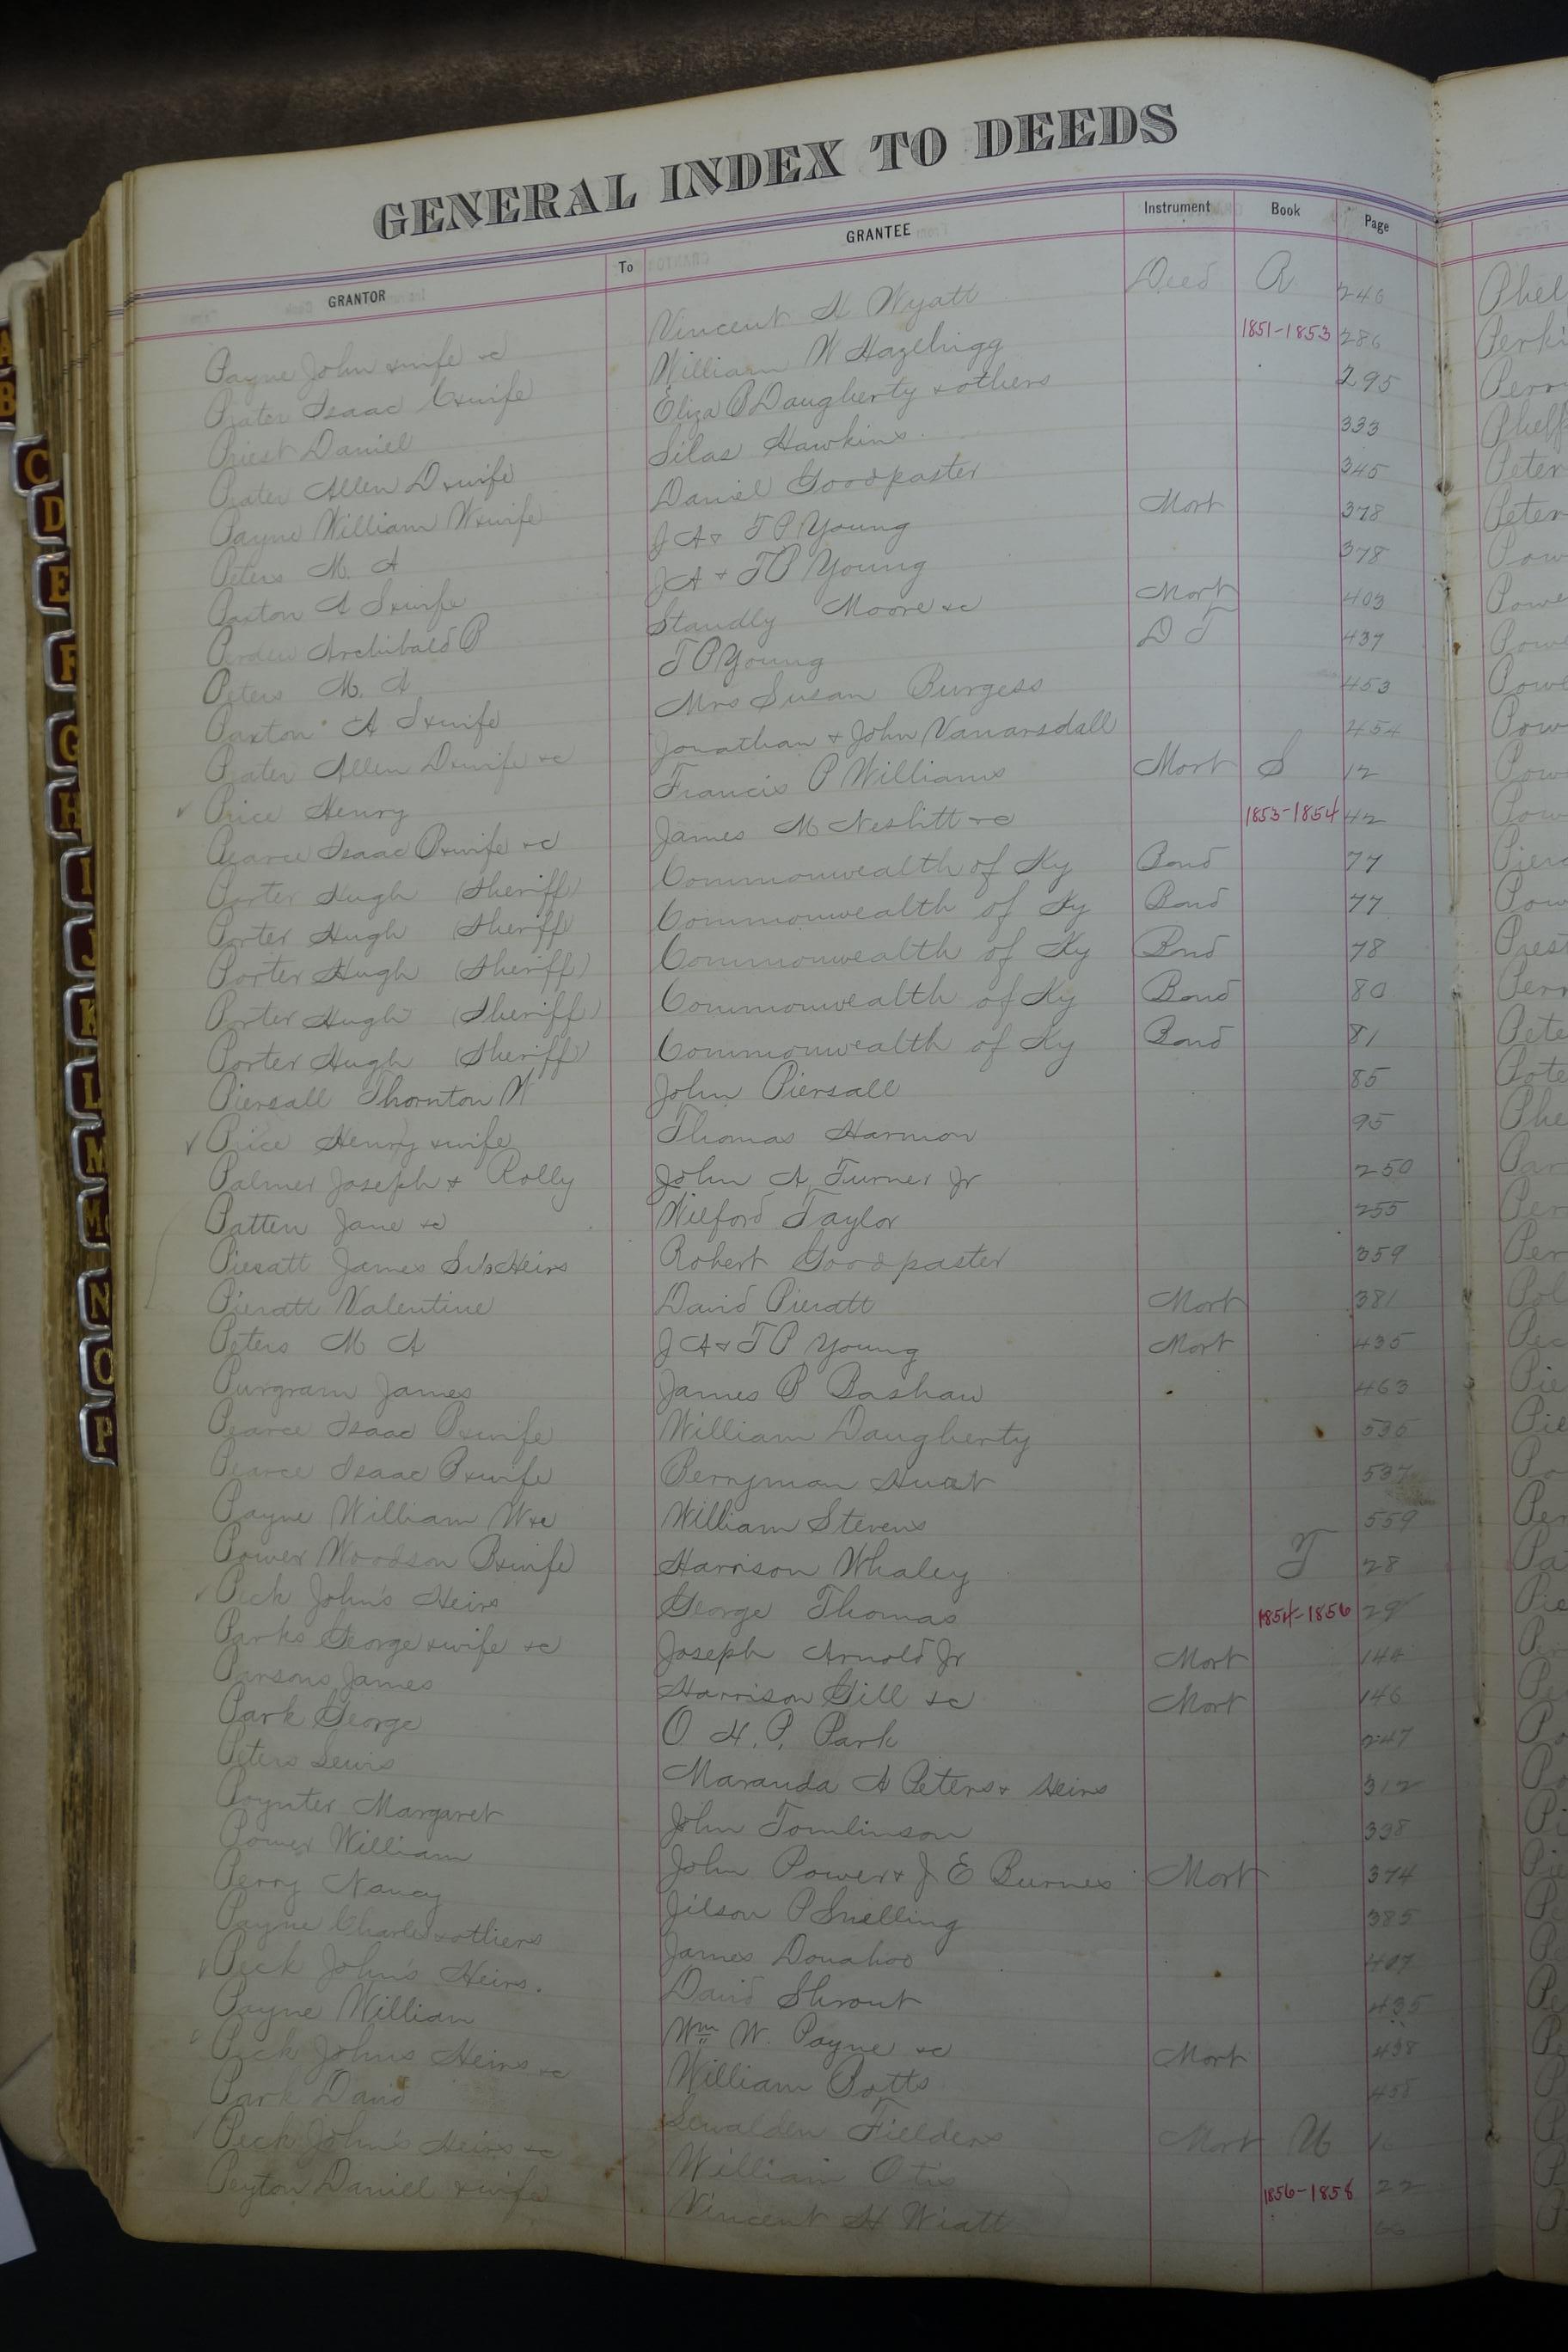 GENERAL INDEX TO DEEDS
GRANTOR To GRANTEE Instrument Book Page
Payne John & wife &c Vincent H Wyatt Deed R 246
Prater Isaac C & wife William W Hazelrigg 1851-1853 286
Priest Daniel Eliza P Daugherty & others 295
Prater Allen D & wife Silas Hawkins 333
Payne William W & wife Daniel Goodpaster 345
Peters M. A J A & T P Young Mort 378
Paxton A S & wife J A & T P Young 378
Perdew Archibald P Standly Moore &c Mort 403
Peters M. A T P Young D T 437
Paxton A S & wife Mrs Susan Burgess 453
Prater Allen D & wife &c Jonathan & John Vanarsdall 454
Price Henry Francis P Williams Mort S 12
Pearce Isaac P & wife &c James M Nesbitt &c 1853-1854 42
Porter Hugh (Sheriff) Commonwealth of Ky Bond 77
Porter Hugh (Sheriff) Commonwealth of Ky Bond 77
Porter Hugh (Sheriff) Commonwealth of Ky Bond 78
Porter Hugh (Sheriff) Commonwealth of Ky Bond 80
Porter Hugh (Sheriff) Commonwealth of Ky Bond 81
Piersall Thornton W John Piersall 85
Price Henry & wife Thomas Harmon 95
Palmer Joseph & Rolly John A Turner Jr 250
Patten Jane &c Wilford Taylor 255
Pieratt James Sr's Heirs Robert Goodpaster 359
Pieratt Valentine David Pieratt Mort 381
Peters M A J A & T P Young Mort 435
Purgram James James P Bashaw 463
Pearce Isaac P & wife William Daugherty 535
Pearce Isaac P & wife Berryman Hurt 537
Payne William W &c William Stevens 559
Power Woodson B & wife Harrison Whaley T 28
Peck John's Heirs George Thomas 1854-1856 29
Parks George & wife &c Joseph Arnold Jr Mort 144
Parsons James Harrison Gill &c Mort 146
Park George O H. P. Park 247
Peters Lewis Maranda A Peters & Heirs 312
Poynter Margaret John Tomlinson 338
Power William John Power & J E Burnes Mort 374
Perry Nancy Jilson P Snelling 385
Payne Charles & others James Donahoo 407
Peck John's Heirs. David Shrout 435
Payne William Wm W. Payne &c Mort 438
Peck Johns Heirs &c William Potts 458
Park David Fielders Mort U
Peck John's Heirs &c William Otis 1856-1858 22
Peyton Daniel & wife Vincent H Wiatt 66
A
B
C
D
E
F
G
H
I
J
K
L
M
Mc
N
O
P